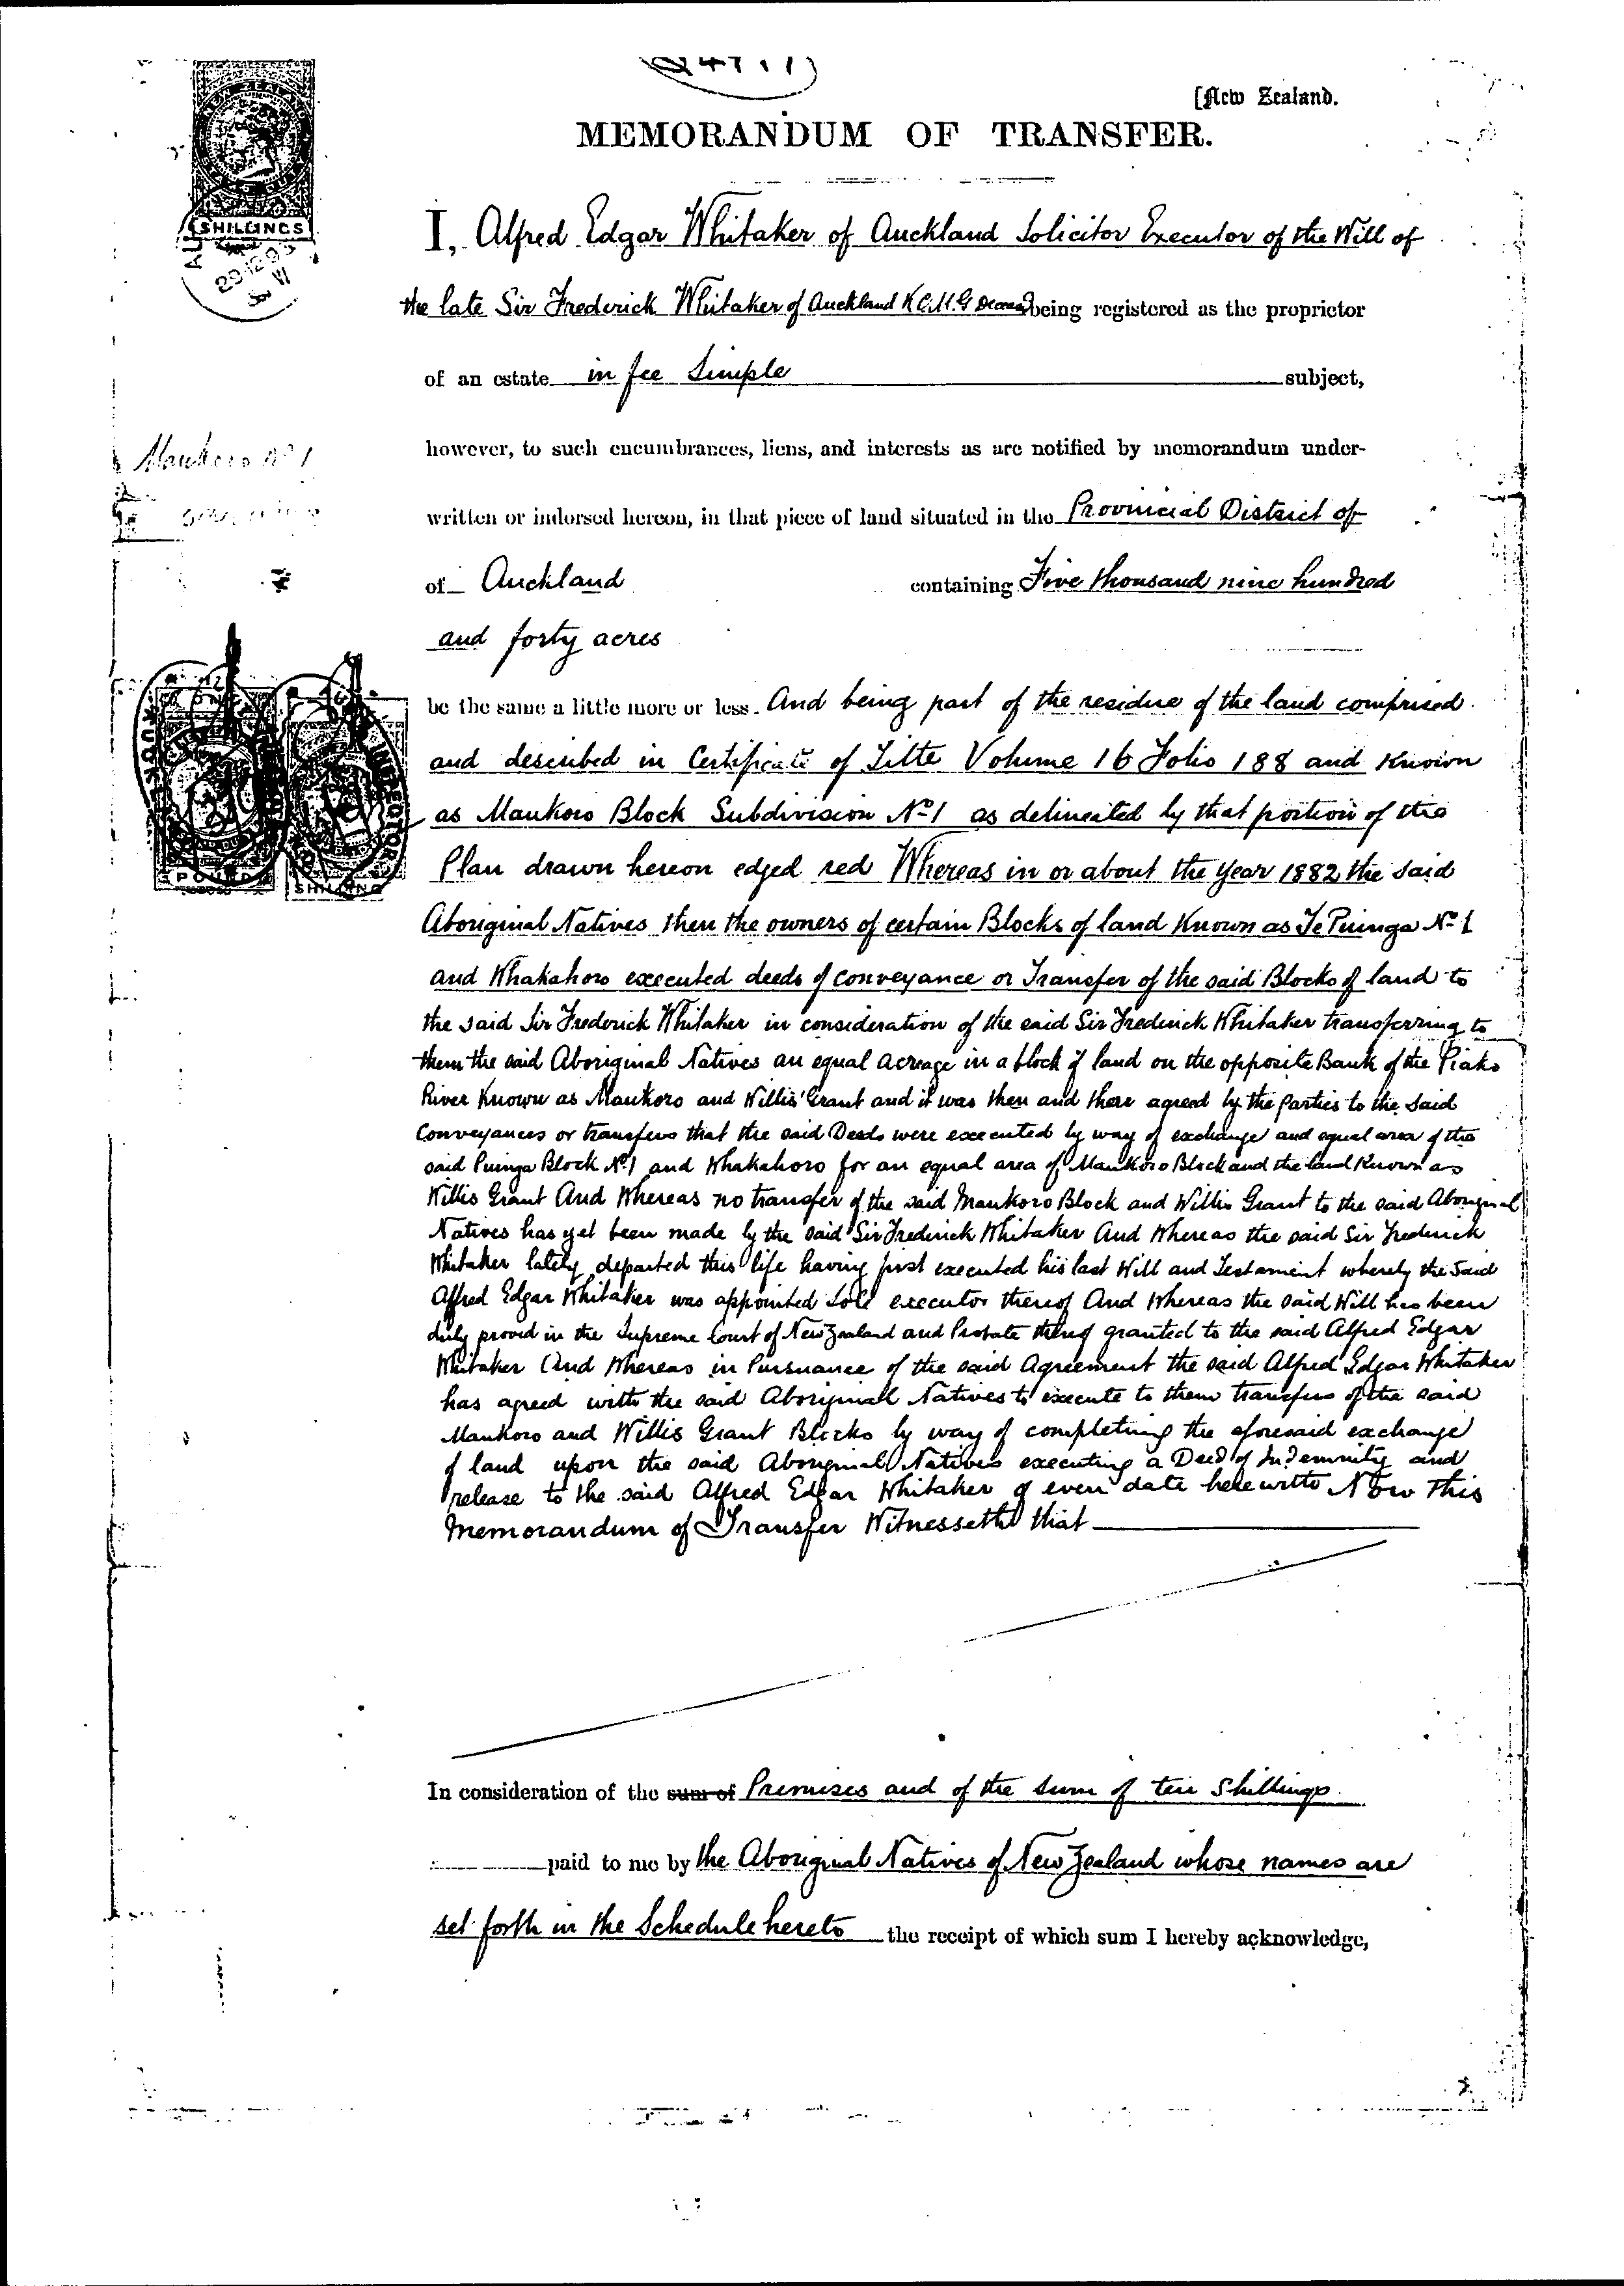 [New Zealand.
MEMORANDUM OF TRANSFER.
I, Alfred Edgar Whitaker of Auckland Solicitor Executor of the Will of
the late Sir Frederick Whitaker of Auckland K.C.M.G. Deceased being registered as the proprietor
of an estate in fee Simple subject,
however, to such encumbrances, liens, and interests as are notified by memorandum under-
written or indorsed hereon, in that piece of land situated in the Provincial District of
of Auckland containing Five thousand nine hundred
and forty acres
Maukoro No 1
be the same a little more or less. And being part of the residue of the land comprised
and described in Certificate of Title Volume 16 Folio 188 and Known
as Maukoro Block Subdivision No 1 as delineated by that portion of the
Plan drawn hereon edged red Whereas in or about the Year 1882 the said
Aboriginal Natives then the owners of certain Blocks of land Known as Te Puinga No 1
and Whakahoro executed deeds of conveyance or Transfer of the said Blocks of land to
the said Sir Frederick Whitaker in consideration of the said Sir Frederick Whitaker transferring to
them the said Aboriginal Natives an equal acreage in a block of land on the opposite Bank of the Piako
River Known as Maukoro and Willis' Grant and it was then and there agreed by the parties to the said
Conveyances or transfers that the said Deeds were executed by way of exchange and equal area of the
said Puinga Block No 1 and Whakahoro for an equal area of Maukoro Block and the land Known as
Willis Grant And Whereas no transfer of the said Maukoro Block and Willis Grant to the said Aboriginal
Natives has yet been made by the said Sir Frederick Whitaker And Whereas the said Sir Frederick
Whitaker lately departed this life having first executed his last Will and Testament whereby the said
Alfred Edgar Whitaker was appointed Sole executor thereof And Whereas the said Will has been
duly proved in the Supreme Court of New Zealand and Probate thereof granted to the said Alfred Edgar
Whitaker And Whereas in Pursuance of the said Agreement the said Alfred Edgar Whitaker
has agreed with the said Aboriginal Natives to execute to them transfers of the said
Maukoro and Willis Grant Blocks by way of completing the aforesaid exchange
of land upon the said Aboriginal Natives executing a Deed of Indemnity and
release to the said Alfred Edgar Whitaker of even date herewith Now This
Memorandum of Transfer Witnesseth that
In consideration of the sum of Premises and of the sum of ten Shillings
paid to me by the Aboriginal Natives of New Zealand whose names are
set forth in the Schedule hereto the receipt of which sum I hereby acknowledge,
SHILLINGS
POUND
SHILLING